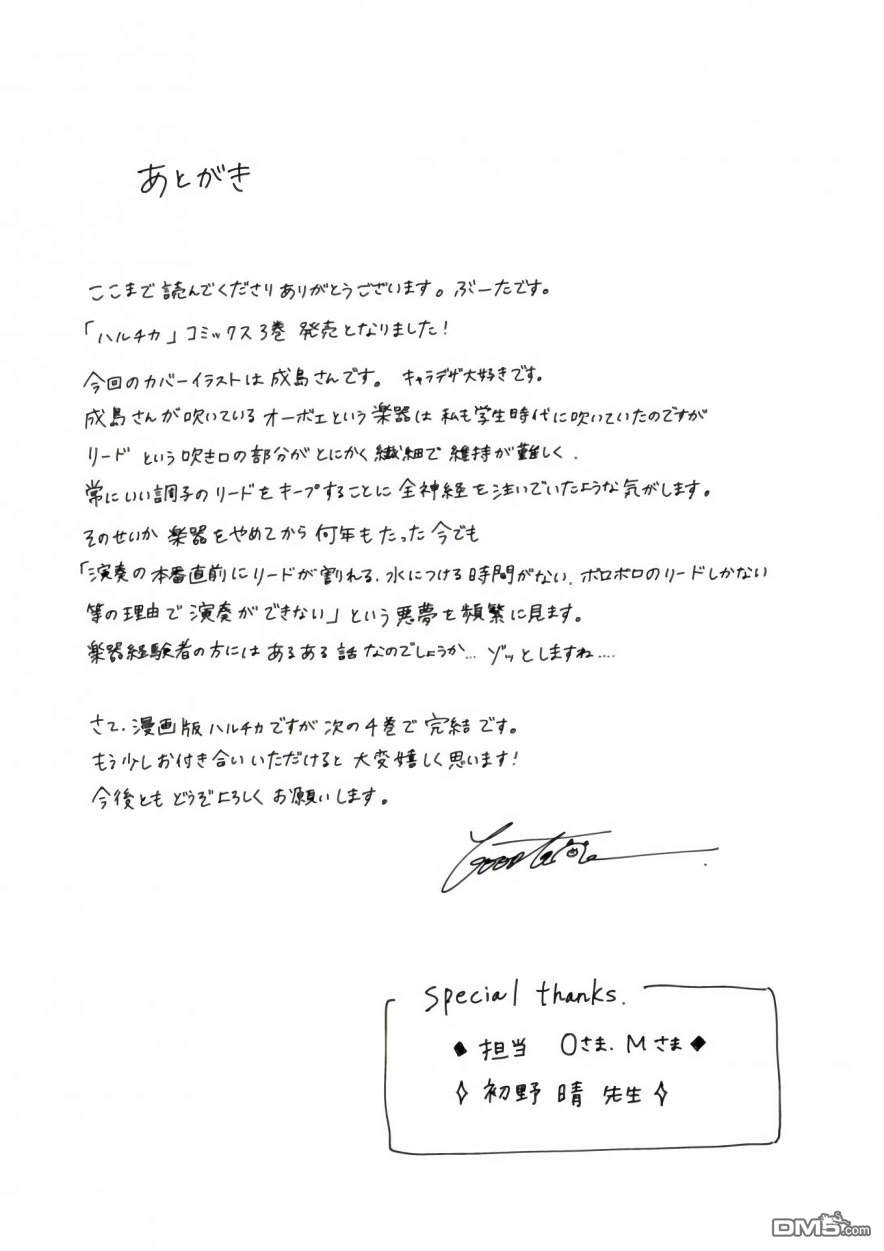 あとがき
ここまで読んでくださりありがとうございます。ぶーたです。
「ハルチカ」コミックス3巻 発売となりました!
今回のカバーイラストは成島さんです。 キャラデザ大好きです。
成島さんが吹いているオーボエという楽器は私も学生時代に吹いていたのですが
リードという吹き口の部分がとにかく繊細で維持が難しく、
常にいい調子のリードをキープすることに全神経を注いでいたような気がします。
そのせいか楽器をやめてから何年もたった今でも
「演奏の本番直前にリードが割れる、水につける時間がない、ボロボロのリードしかない
等の理由で演奏ができない」という悪夢を頻繁に見ます。
楽器経験者の方にはあるある話なのでしょうか… ゾッとしますね….
さて、漫画版ハルチカですが次の4巻で完結です。
もう少しお付き合いいただけると大変嬉しく思います!
今後ともどうぞよろしくお願いします。
Special thanks.
◆担当 Oさま、Mさま◆
✧初野晴 先生✧
DM5.com